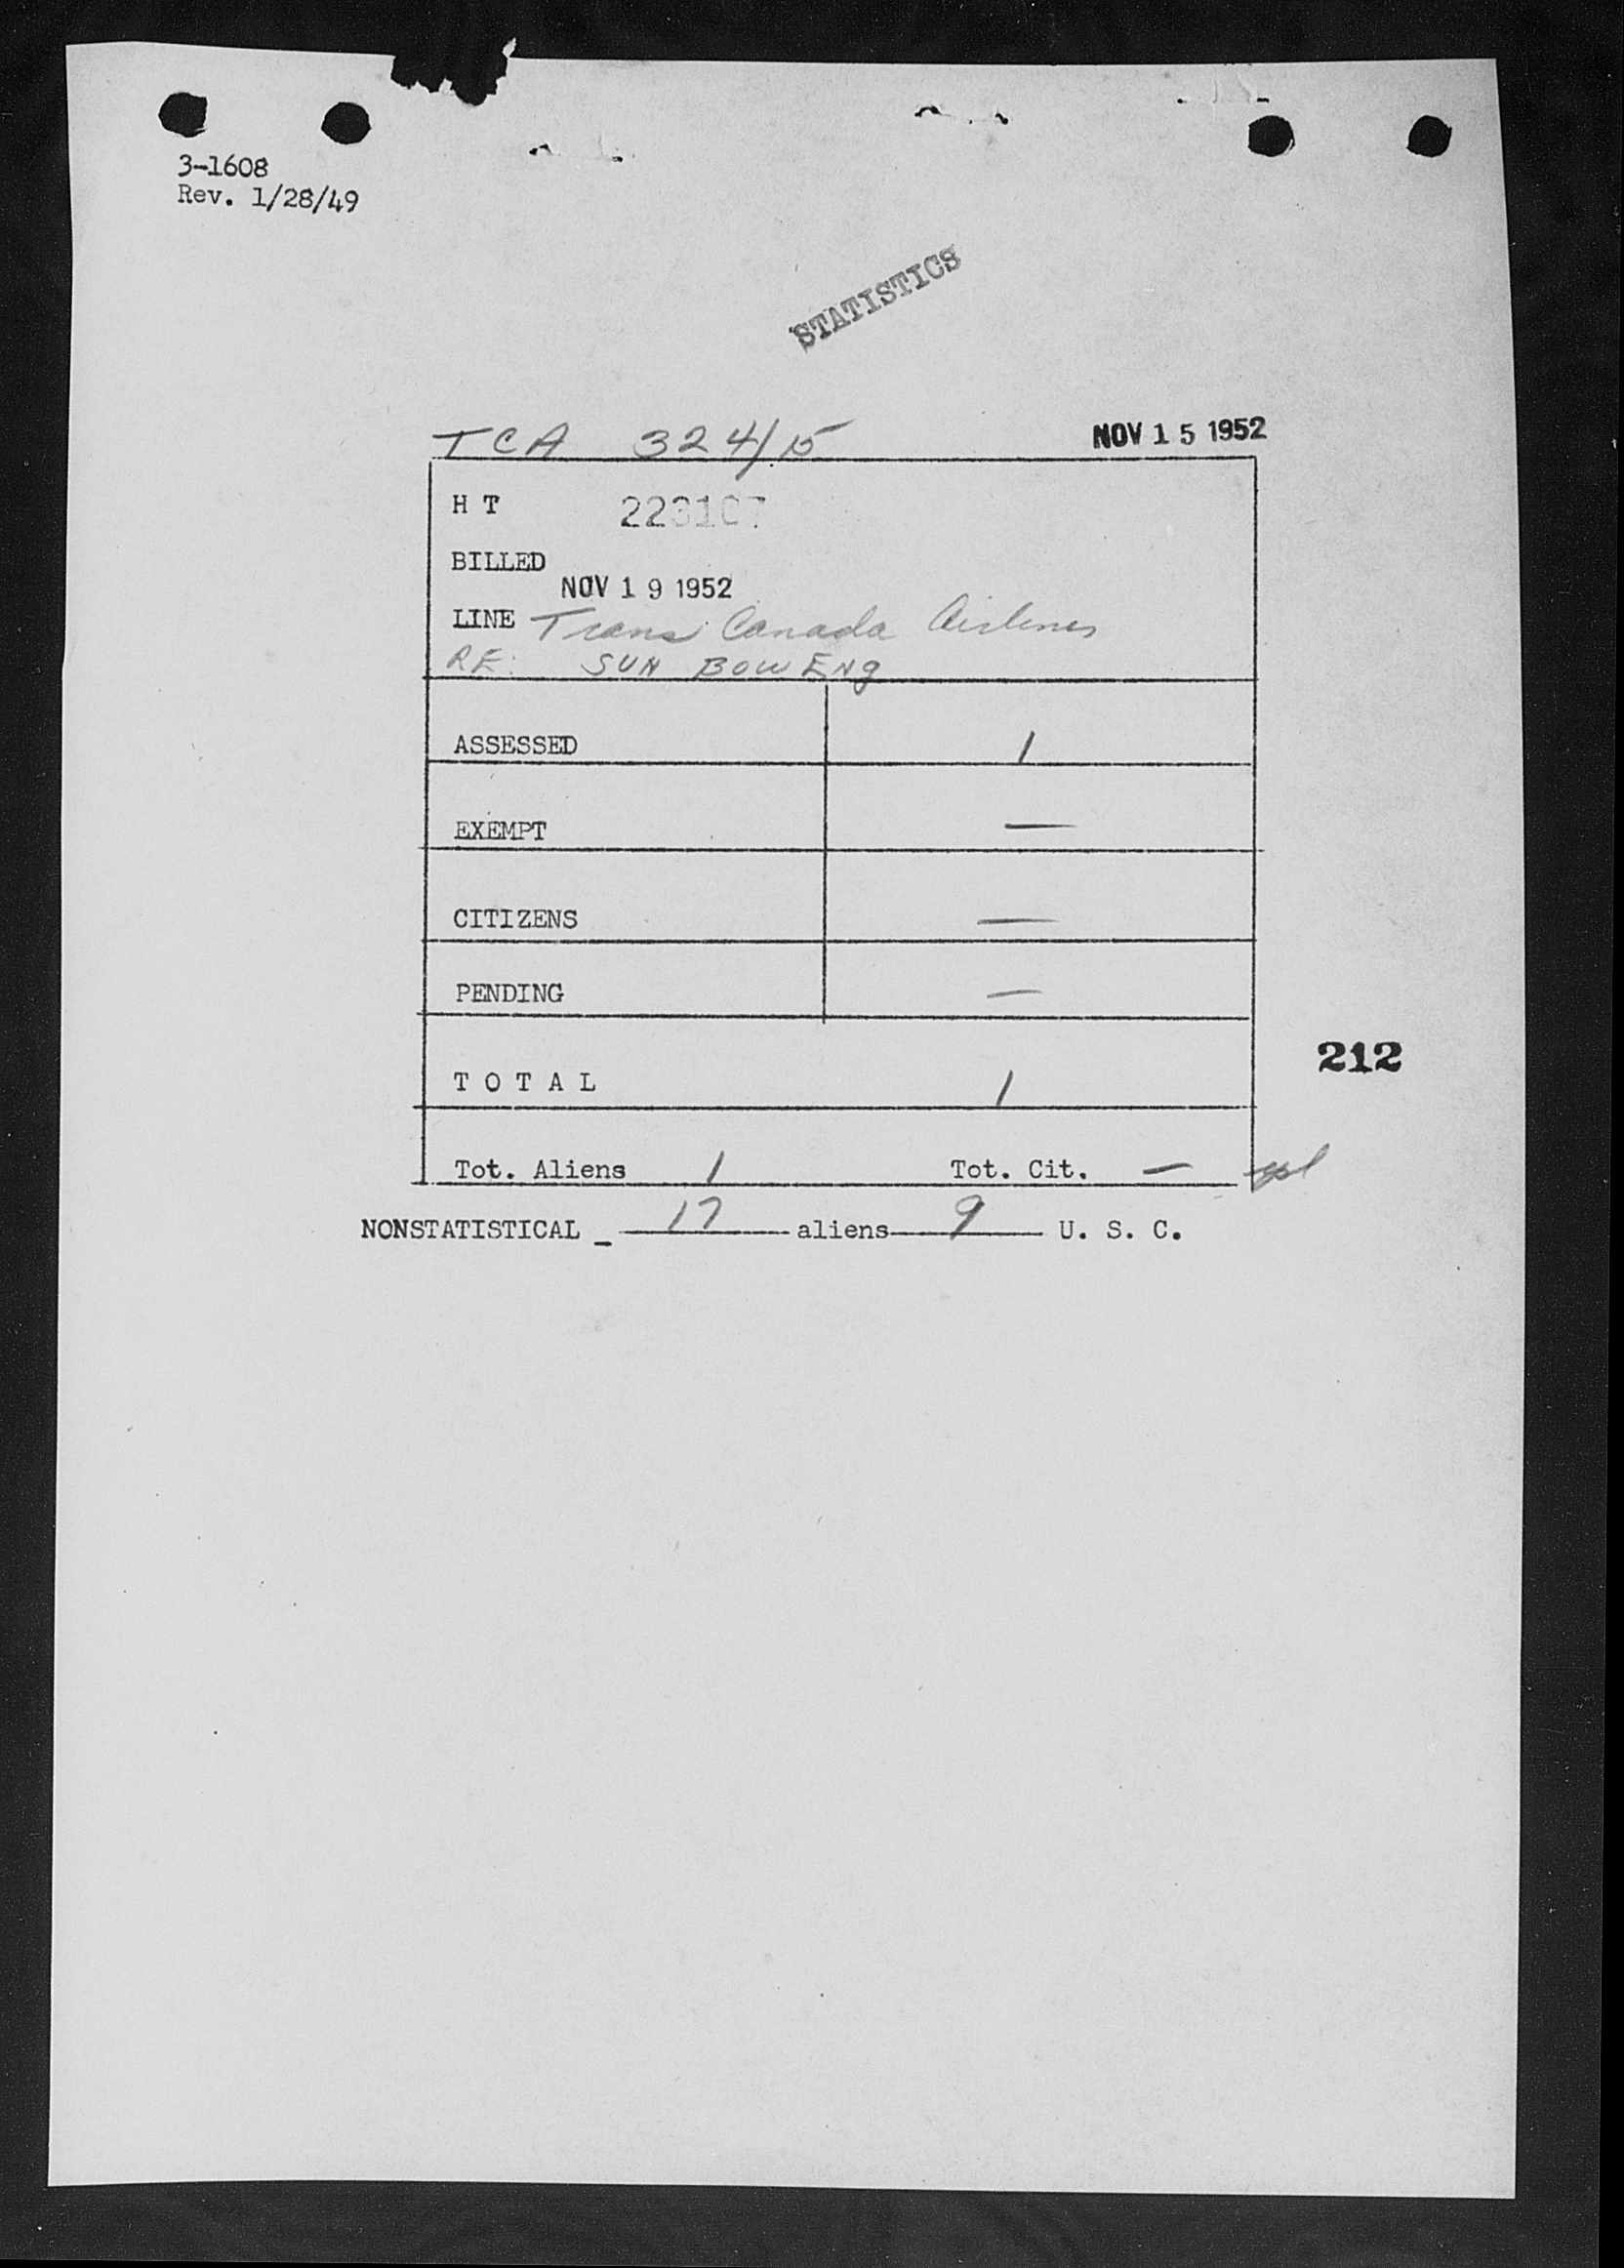 3-1608
Rev. 1/28/49
STATISTICS
TCA 324/15 NOV 15 1952
H T 223107
BILLED
NOV 19 1952
LINE Trans Canada Airlines
RE: SUN BOW ENg
ASSESSED 1
EXEMPT —
CITIZENS —
PENDING —
212
T O T A L 1
Tot. Aliens 1 Tot. Cit. —
NONSTATISTICAL - 17 aliens 9 U. S. C.